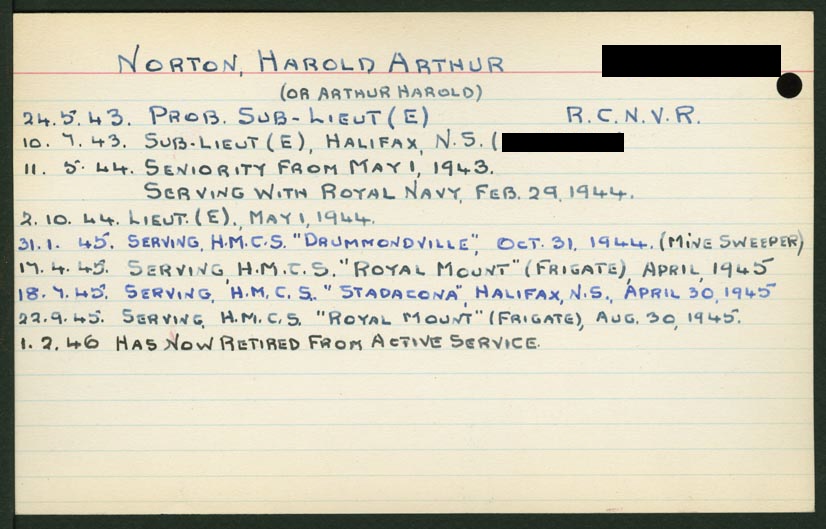 NORTON, HAROLD ARTHUR
(OR ARTHUR HAROLD)
24.5.43. PROB. SUB-LIEUT (E) R.C.N.V.R.
10.7.43. SUB-LIEUT (E), HALIFAX, N.S. (
11. 5. 44. SENIORITY FROM MAY 1, 1943.
SERVING WITH ROYAL NAVY, FEB. 29, 1944.
2.10.44. LIEUT. (E)., MAY 1, 1944.
31.1.45. SERVING, H.M.C.S. "DRUMMONDVILLE", OCT. 31, 1944. (MINE SWEEPER)
17.4.45. SERVING H.M.C.S. "ROYAL MOUNT" (FRIGATE), APRIL, 1945
18.7.45. SERVING, H.M.C.S. "STADACONA", HALIFAX, N.S., APRIL 30, 1945
22.9.45. SERVING, H.M.C.S. "ROYAL MOUNT" (FRIGATE), AUG. 30, 1945.
1.2.46 HAS NOW RETIRED FROM ACTIVE SERVICE.